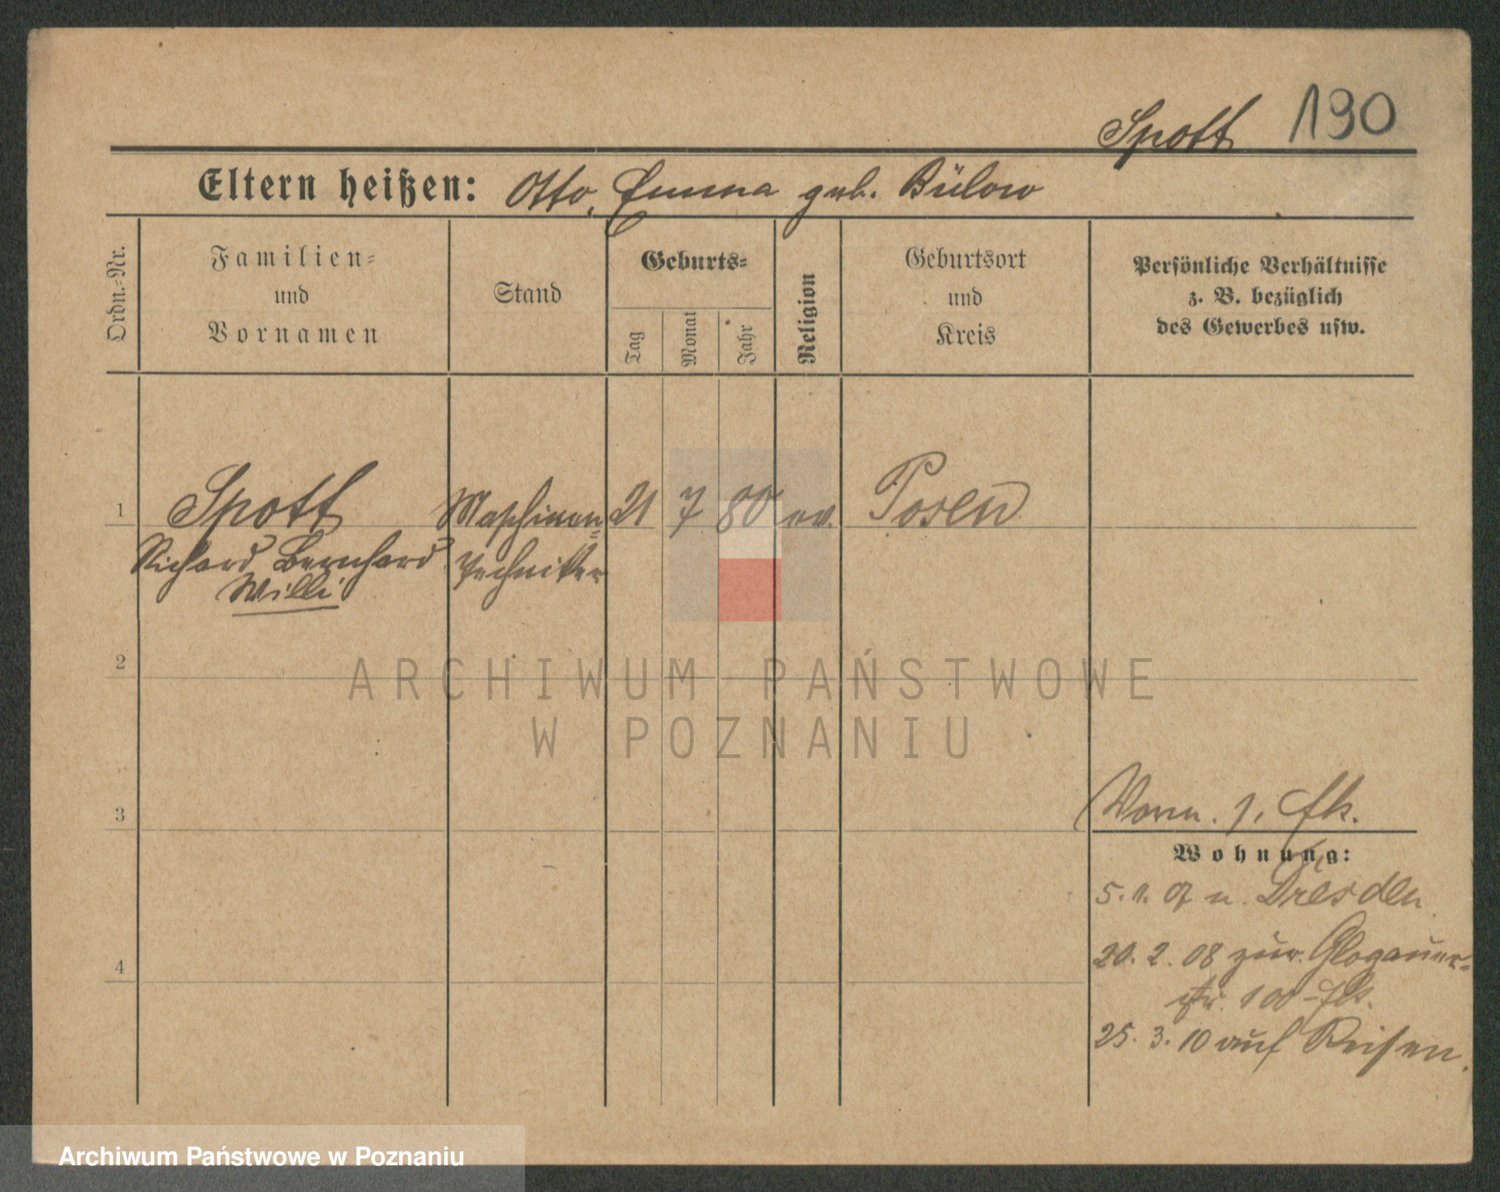 Spott 190
Eltern heißen: Otto, Emma geb. Bülow
Ordn.-Nr.
Familien-
und
Vornamen
Stand
Geburts-
Tag
Monat
Jahr
Religion
Geburtsort
und
Kreis
Persönliche Verhältnisse
z. B. bezüglich
des Gewerbes usw.
1 Spott Maschinen= 21 7 80 ev. Posen
Richard Bernhard Techniker
Willi
2
ARCHIWUM PAŃSTWOWE
W POZNANIU
3
Wohnung:
5. 1. 07 n. Dresden
20. 2. 08 zur. Glogauer=
str. 100
25. 3. 10 auf Reisen.
4
Archiwum Państwowe w Poznaniu